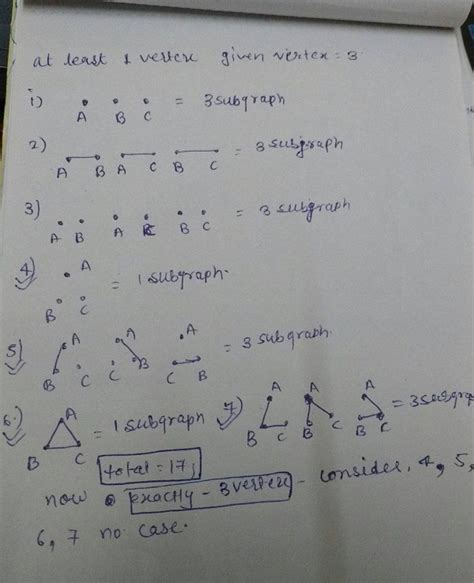 at least 1 vertex given vertex = 3.
1) A B C = 3 subgraph
2) A B A C B C = 3 subgraph
3) A B A C B C = 3 subgraph
4) A B C = 1 subgraph.
5) A B C A C B A C B = 3 subgraph
6) A B C = 1 subgraph
7) A B C A B C A B C = 3 subgra
total = 17;
now exactly - 3 vertex - consider, 4, 5,
6, 7 no case.